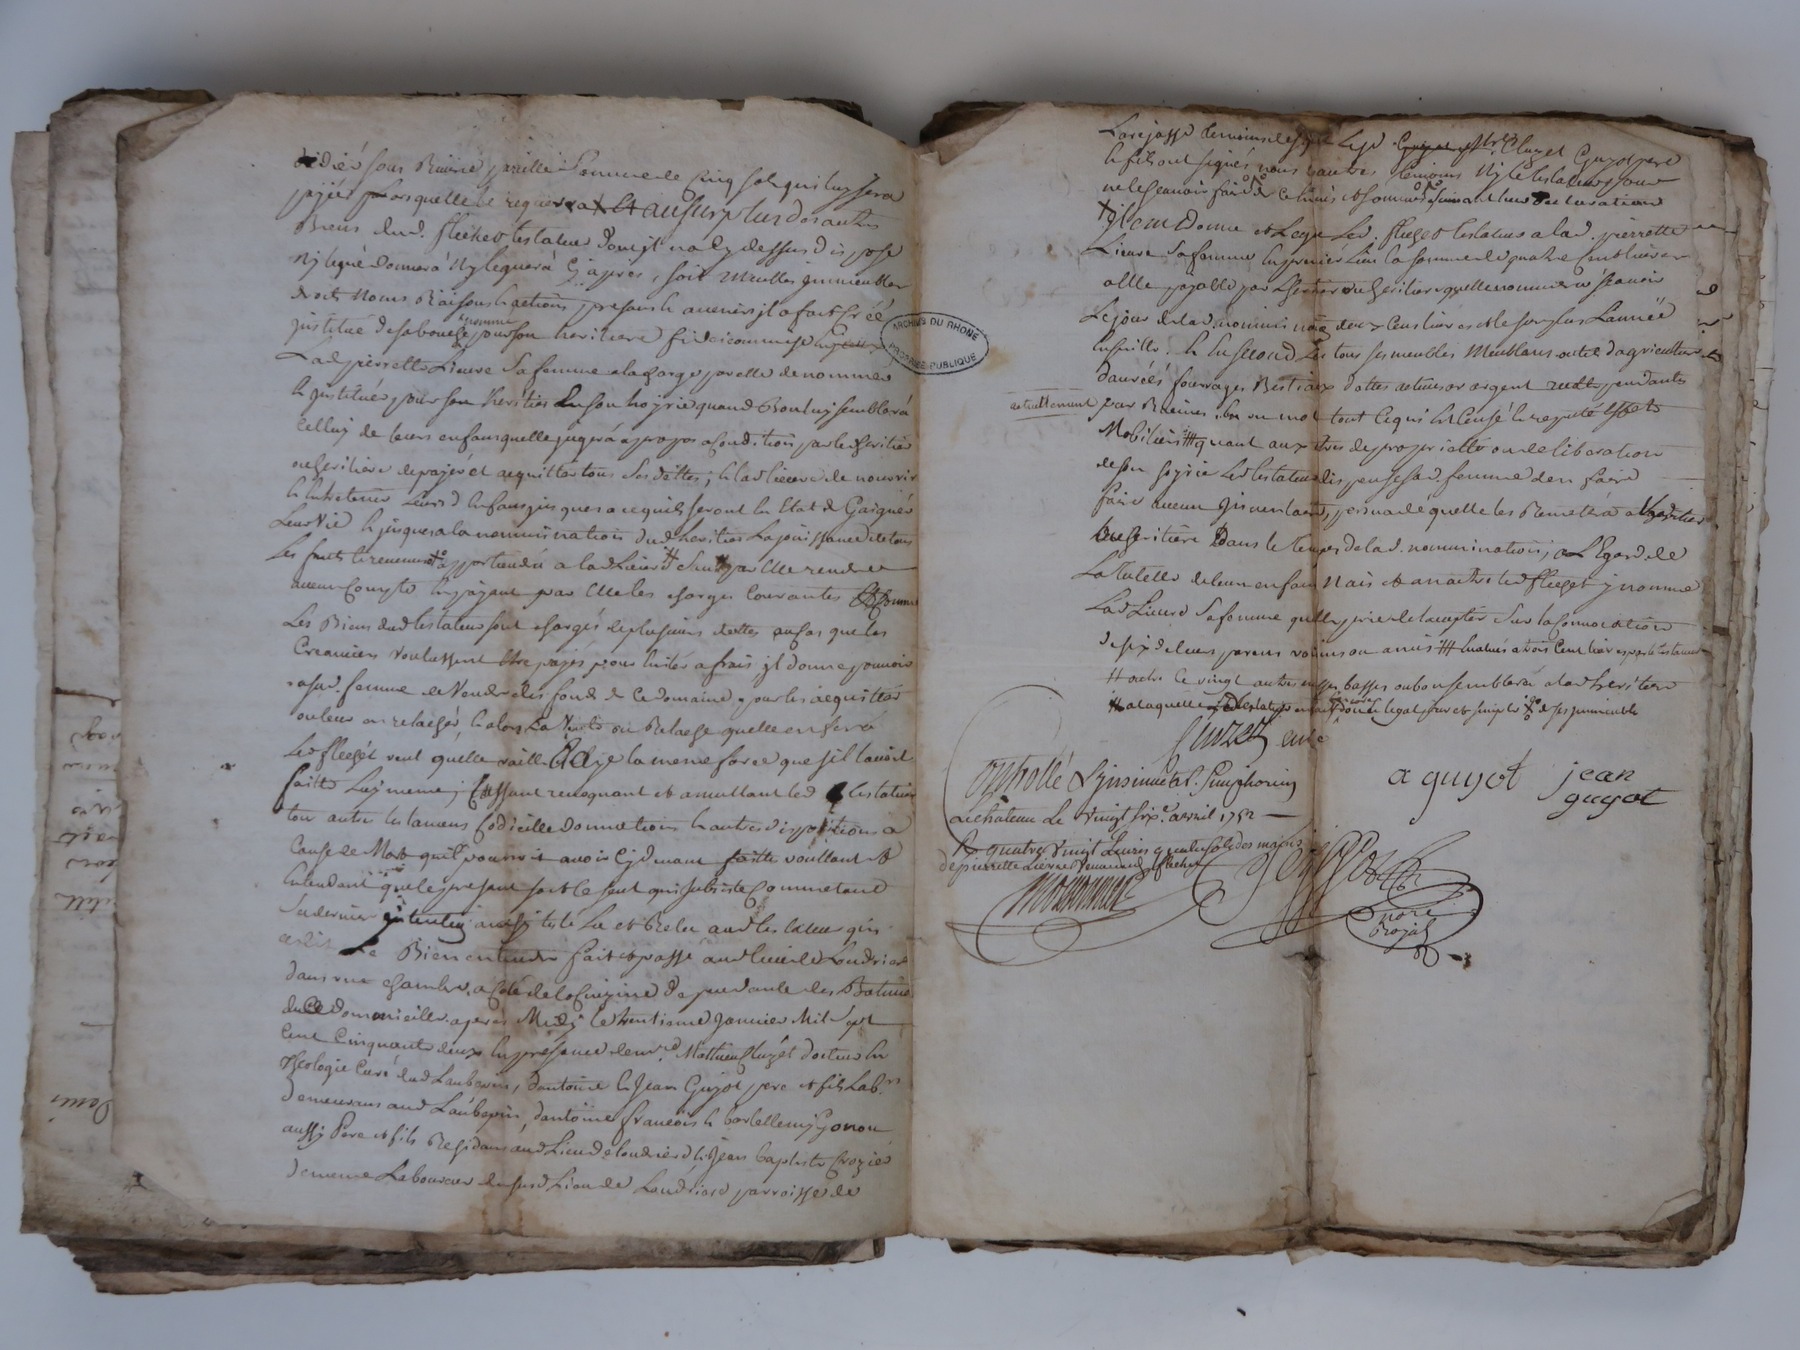 sous Biard pareille Somme de Cinq sols qui luy sera
payée Lors quelle le requerera Et au surplus des autres
Biens dud. flechet testateur dont jl na cy dessus disposé
Ny legué donnera Ny leguera Cy apres, soit Meubles jmmeubles
droits Noms Raisons & actions presants & avenirs jl a fait créé
justitué de sa bouche & nommé pour son heritiere fideicommise
Lad. pierrette Lieure Sa femme a la charge par elle de nommer
& jnstituer pour son heritier En son hoyrie quand Bon luy semblera
Celluy de leurs enfans quelle jugera a propos a Condition par led. heritier
ou heritiere de payer et acquitter tous Ses dettes; & lad. lieure de nourrir
& Entretenir Leursd. Enfans jusques a ce quils seront En Etat de Gaigner
Leur Vie & jusques a la nommination dud. heritier La jouissance de tous
Les fruits & revenus appartiendra a lad. Lieure Sans par Elle rendre
aucun Compte En payant par Elle les charges Courantes Et Comme
Les Biens dud. testateur sont chargés de plusieurs dettes au Cas que les
Creanciers Voulussent Etre payés pour Eviter a frais jl donne pouvoir
a sad. femme de Vendre des fonds de Ce domaine pour les acquitter
ou leur en relacher, & alors La Vente ou Relache quelle en fera
Led. flechet veut quelle vaille & aye la meme force que sil lavoit
faitte Luy meme; Cassant revoquant et annullant led. testateur
tous autres testamens Codicille donnations & autres dispositions a
Cause de Mort quil pourroit avoir Cy devant faitte voullant &
Entendant que le present soit le seul qui subsiste Comme etant
Sa derniere jntention ainsy testé Lu et Relu aud. testateur qui
a dit Le Bien entendre fait et passé aud. lieu de Loudriere
dans une chambre a Coté de la Cuizine dependante des Batiments
de Ce domicille apres Midy le trentieme Janvier Mil Sept
Cent Cinquante deux En presence de mre. Mathieu Cluzet docteur En
Theologie Curé dud. Laubepin, d'antoine & Jean Guyot pere et fils Labrs
demeurans aud. Laubepin, dantoine françois & bartellemy Gonon
aussy Pere et fils Residans aud. Lieu de loudriere & Jean baptiste Crozier
dememe Laboureur dusd. Lieu de Loudriere parroisse de
ARCHIVES DU RHONE
PROPRIÉTÉ PUBLIQUE
Larajasse temoins Lesd. Srs. Cluzet Guyot pere
& fils ont signés nous & autres temoins Ny le testateur pour
ne le sçavoir faire de Ce Enquis & Sommés suivant leur declaration
jtem Donne et Legue Led. flechet testateur a lad. pierrette
Lieure Sa femme En premier Lieu la somme de quatre Cent livres
a Elle payable par L'heritier ou heritiere quelle nommera sçavoir
Le jour de lad. nommination deux Cens livres et le surplus L'année
Ensuitte. & En Second Lieu tous ses meubles Meublans outils d'agriculture
danrées fourrages Bestiaux dettes actives or argent pendants
actuellement
par Racines En un mot tout Ce qui Est Censé & reputé Effets
Mobiliers quant aux titres de proprietté ou de liberation
de son hoyrie Led. testateur dispense sad. femme den faire
faire aucun jnventaire, persuadé quelle les Remettra a L'heritier
ou heritiere Dans le temps de lad. nommination; a L'Egard de
La tutelle de leurs enfans Nais et a naitre led. flechet y nomme
Lad. Lieure Sa femme quil prie de laccepter Sur la Convocation
de six de leurs parens voisins ou amis Evalués a trois Cent livres par le testateur
outre Ce vingt autres messes basses ou bon semblera a lad. heritiere
a laquelle led. testateur en fait don & legat pur et simple de ses jmmeubles
Cluzet curé
a guyot jean
guyot
Controllé & jnsinué a St. Simphorien
Le chateau Le Vingt six. avril 1752
R quatre Vingt Livres quatre sols des mains
de pierrette Lieure Venant de flechet
nore
Royal